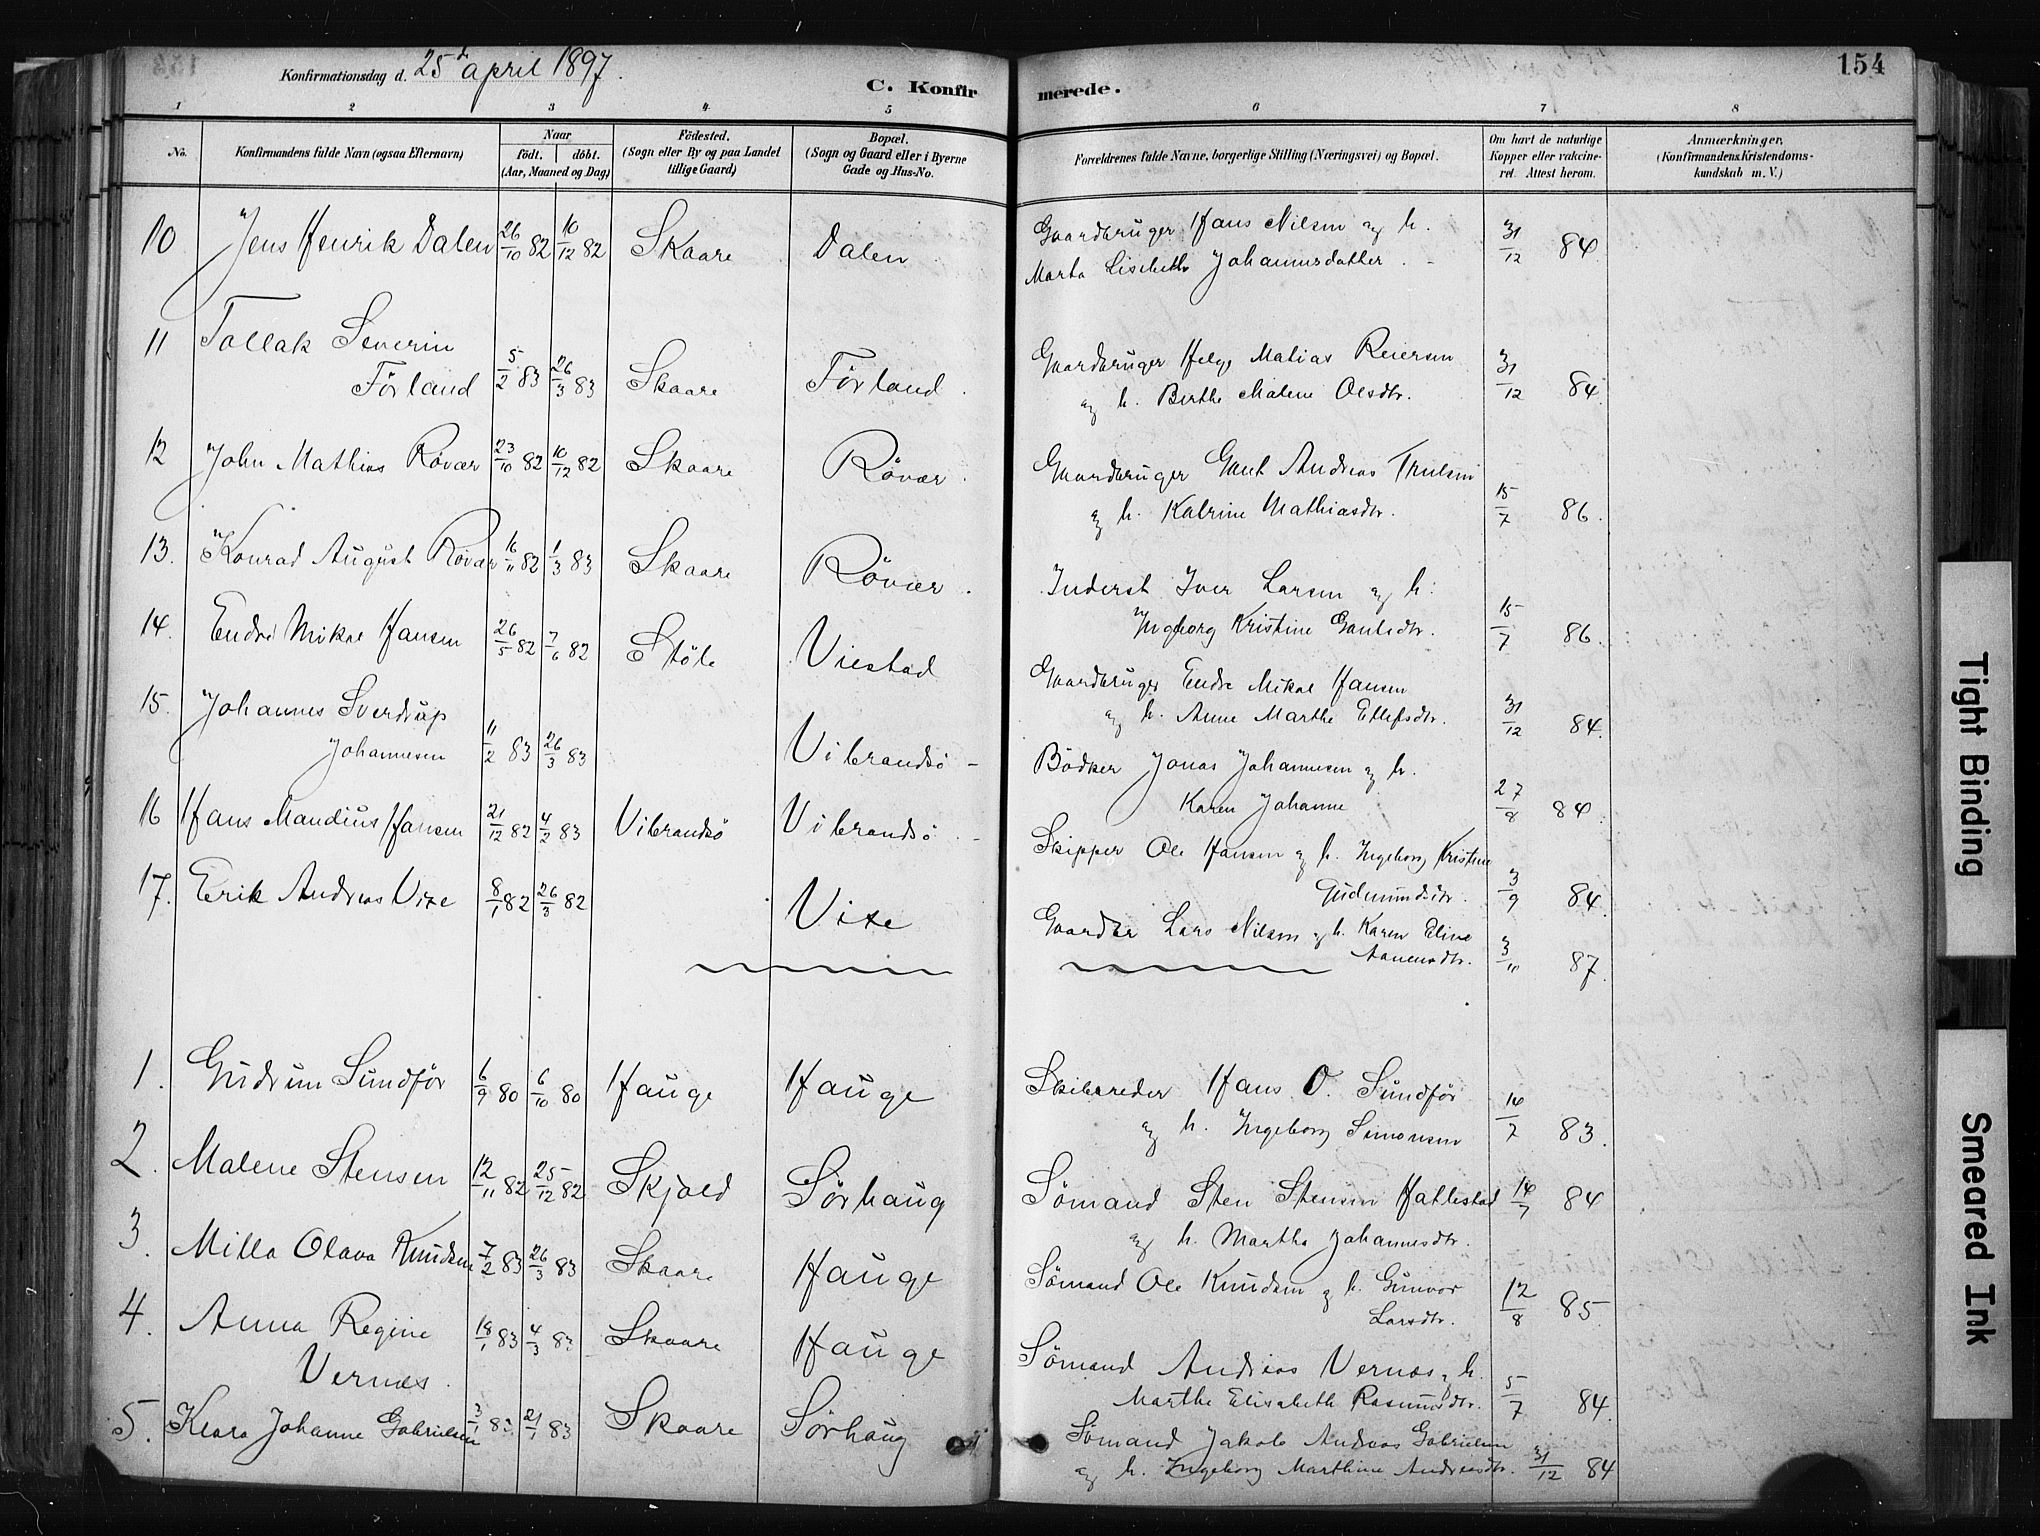 154
Konfirmationsdag d. 25de april 1897.
C. Konfirmerede.
1 2 3 4 5 6 7 8
No. Konfirmandens fulde Navn (ogsaa Efternavn) Naar födt. döbt. (Aar, Maaned og Dag) Födested. (Sogn eller By og paa Landet tillige Gaard) Bopæl. (Sogn og Gaard eller i Byerne Gade og Hus-No. Forældrenes fulde Navne, borgerlige Stilling (Næringsvei) og Bopæl. Om havt de naturlige Kopper eller vakcineret. Attest herom. Anmærkninger. (Konfirmandens Kristendomskundskab m. V.)
10 Jens Henrik Dalen 26/10 82 10/12 82 Skaare Dalen Gaardbruger Hans Nilsen og h. 31/12 84
Marta Lisebeth Johannesdatter.
11 Tollak Severin Gaardbruger Helge Matias Reiersen
Förland 5/2 83 26/3 83 Skaare Förland. og h. Berthe Malene Olsdtr. 31/12 84.
12 John Mathias Rövær 23/10 82 10/12 82 Skaare Rövær. Gaardbruger Gaut Andreas Trulsen
og h. Katrine Mathiasdtr. 15/7 86.
13. Konrad August Rövær 16/11 82 1/3 83 Skaare Rövær. Inderst Iver Larsen og h.
Ingborg Kristine Gautsdtr. 15/7 86.
14. Endre Mikal Hansen 26/5 82 7/6 82 Stöle Viestad Gaardbruger Endre Mikal Hansen
og h. Anne Marthe Ellefsdtr. 31/12 84.
15. Johannes Sverdrup
Johannesen 11/2 83 26/3 83 Vibrandsö Bödker Jonas Johannesen og h.
Karen Johanne 27/8 84.
16 Hans Mandius Hansen 21/12 82 4/2 83 Vibrandsö Vibrandsö. Skipper Ole Hansen og h. Ingeborg Kristine
Gudmundsdtr. 3/9 84.
17. Erik Andreas Vixe 8/1 82 26/3 82 Vixe Gaardbr Lars Nilsen og h. Karen Eline
Aanensdtr. 3/11 87.
1. Gudrun Sundför 6/9 80 6/10 80 Hauge Hauge Skibsreder Hans O. Sundför
og h. Ingeborg Simonsen 14/7 83.
2. Malene Stensen 12/11 82 25/12 82 Skjold Sörhaug Sömand Sten Stensen Hattestad 14/7 84
og h. Martha Johannesdtr.
3. Milla Olava Knudsen 7/2 83 26/3 83 Skaare Hauge Sömand Ole Knudsen og h. Gunvor
Larsdtr. 12/8 85.
4. Anna Regine 18/1 83 4/3 83 Skaare Hauge Sömand Andreas Vernæs og h.
Vernæs. Marthe Elisabeth Rasmusdtr. 5/7 84.
5. Klara Johanne Gabrielsen 3/1 83 21/1 83 Skaare Sörhaug Sömand Jakob Andreas Gabrielsen
og h. Ingeborg Marthine Andreasdtr. 31/12 84
Tight Binding
Smeared Ink